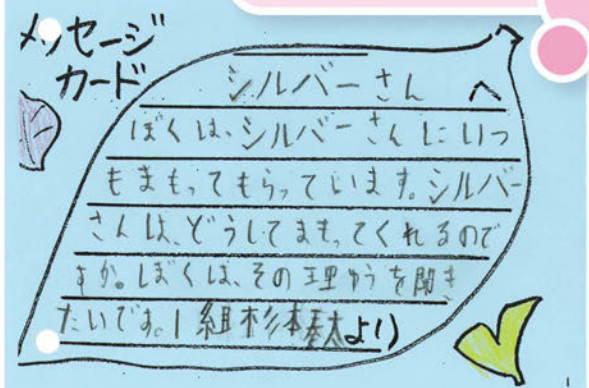 メッセージ
カード
シルバーさん へ
ぼくは、シルバーさんにいつ
もまもってもらっています。シルバー
さんは、どうしてまもってくれるので
すか。ぼくは、その理ゆうを聞き
たいです。1組杉本より